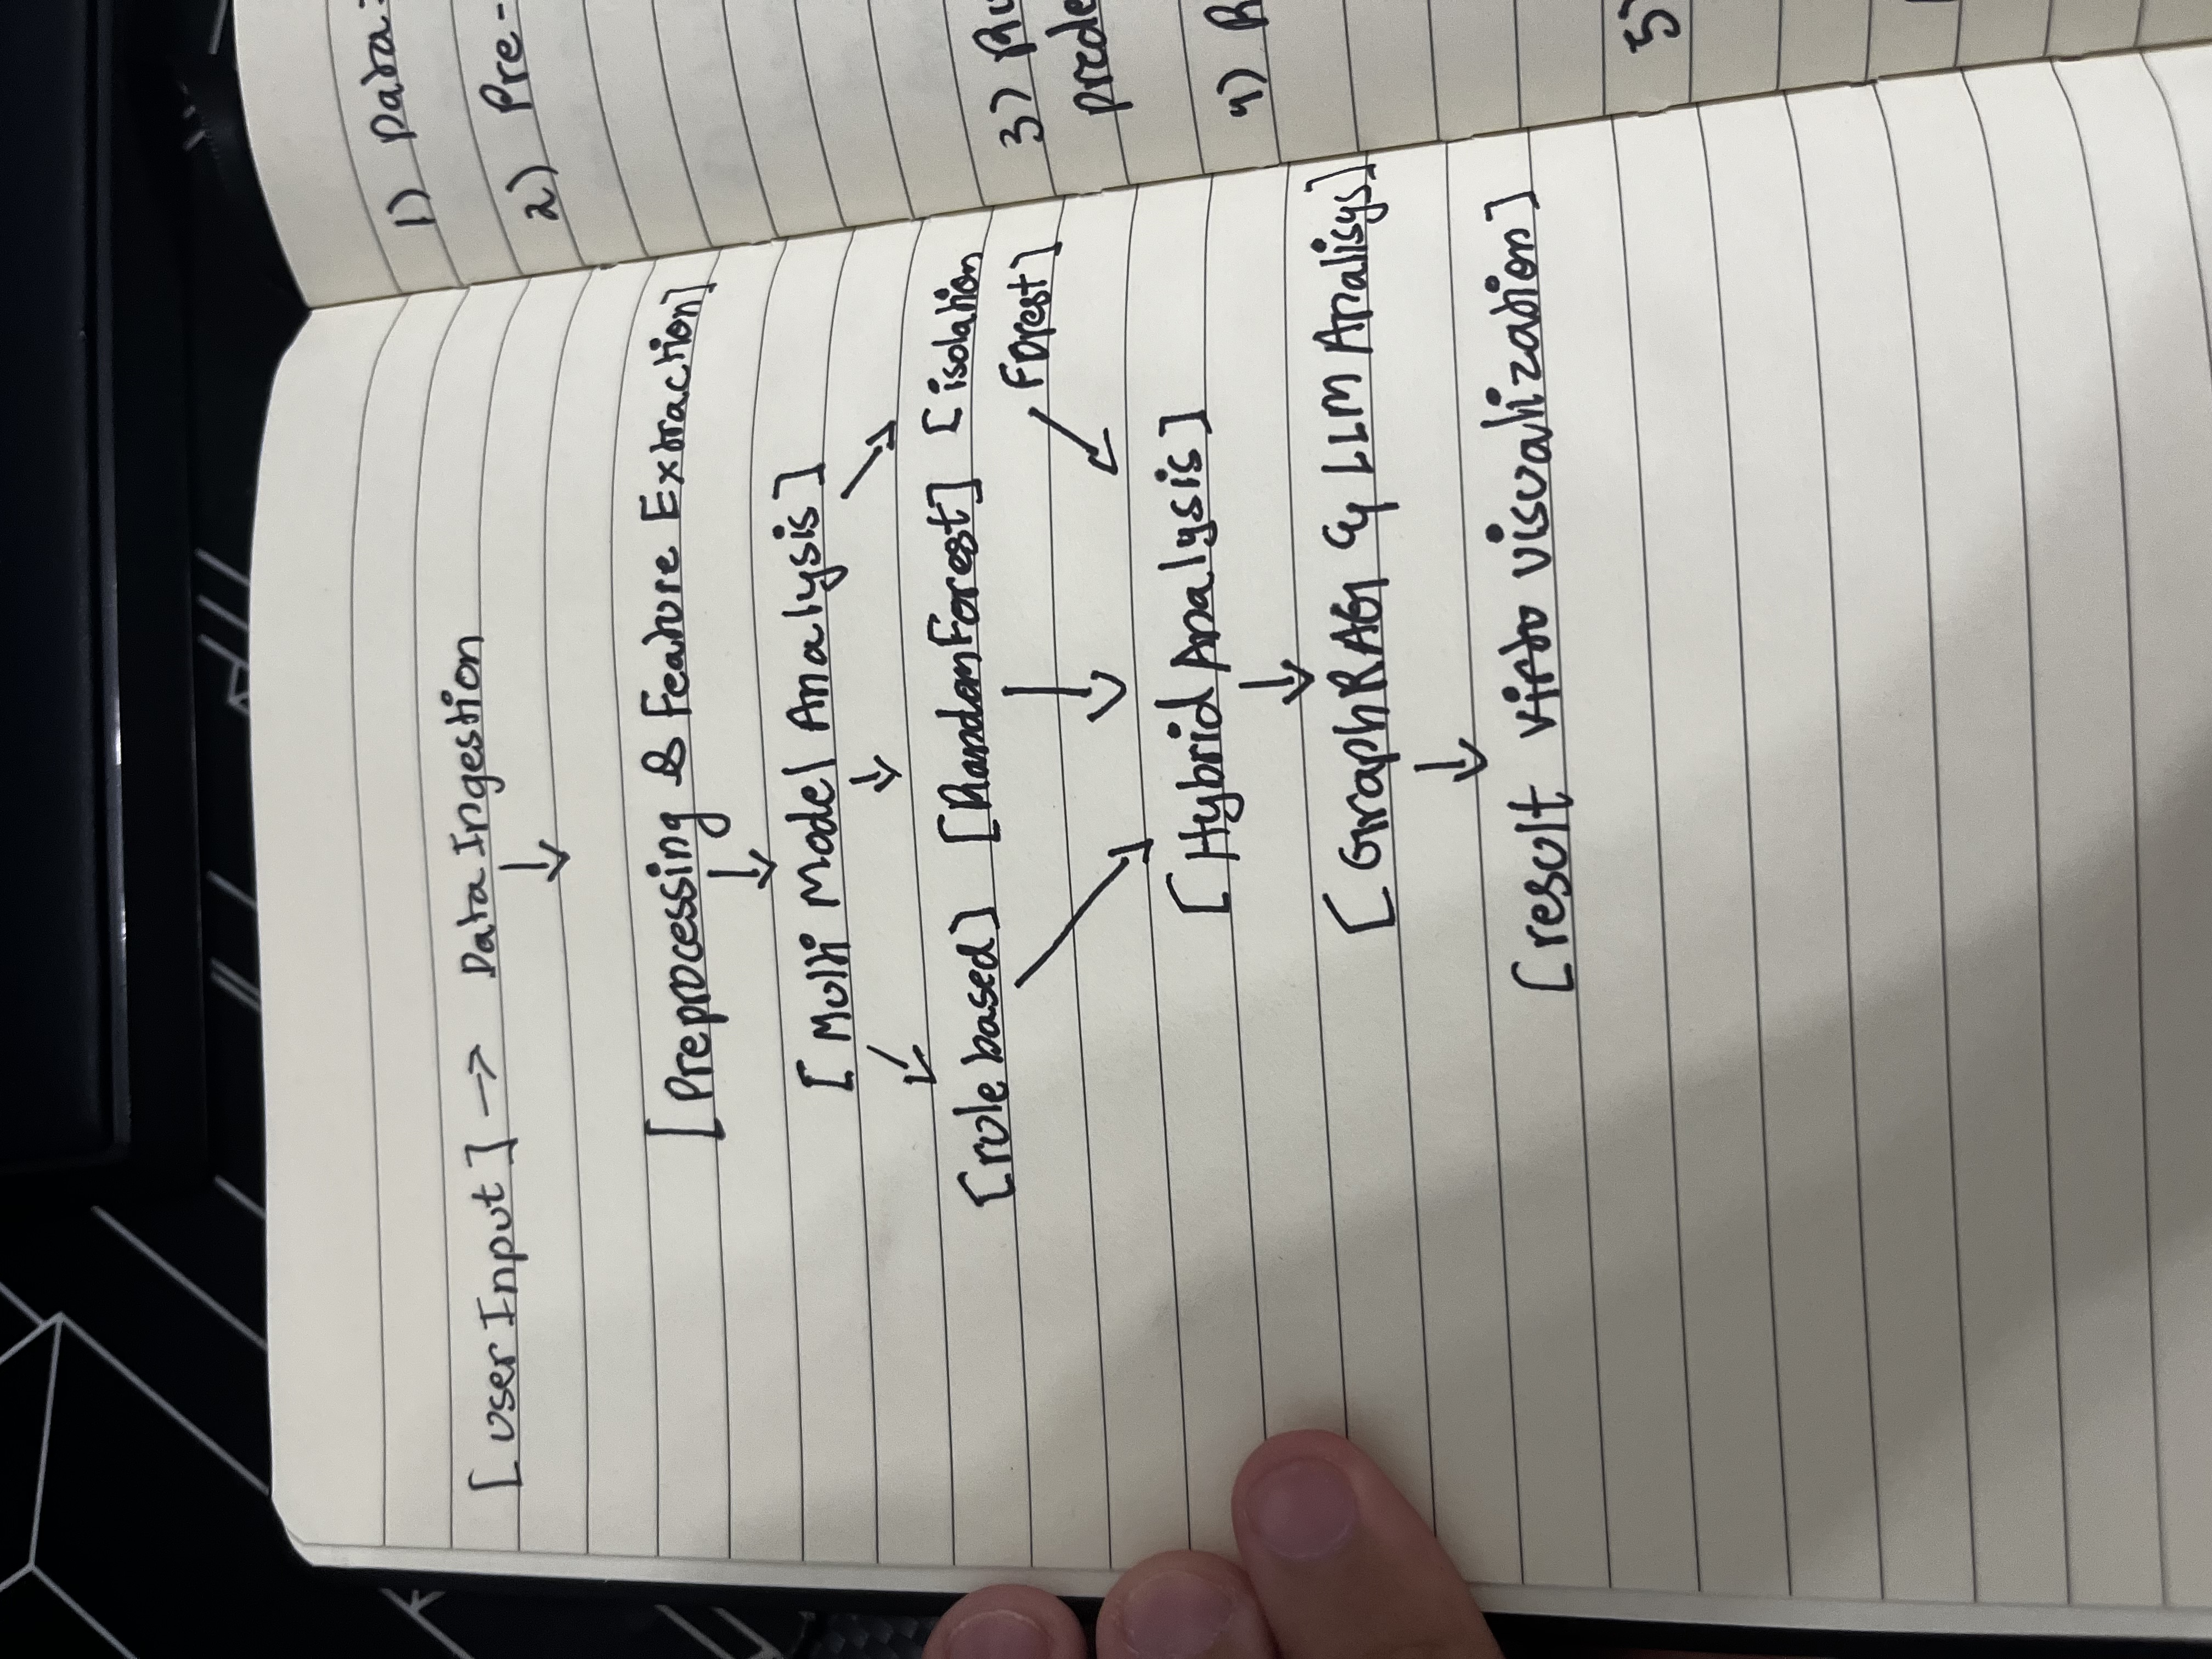 [User Input] → Data Ingestion
↓
[Preprocessing & Feature Extraction]
↓
[Multi Model Analysis]
↙ ↓ ↘
[rule based] [Random Forest] [isolation
Forest]
↘ ↓ ↙
[Hybrid Analysis]
↓
[GraphRAG & LLM Analisys]
↓
[result visualization]
1) Data
2) Pre-
3) Ru
prede
4) R
5)